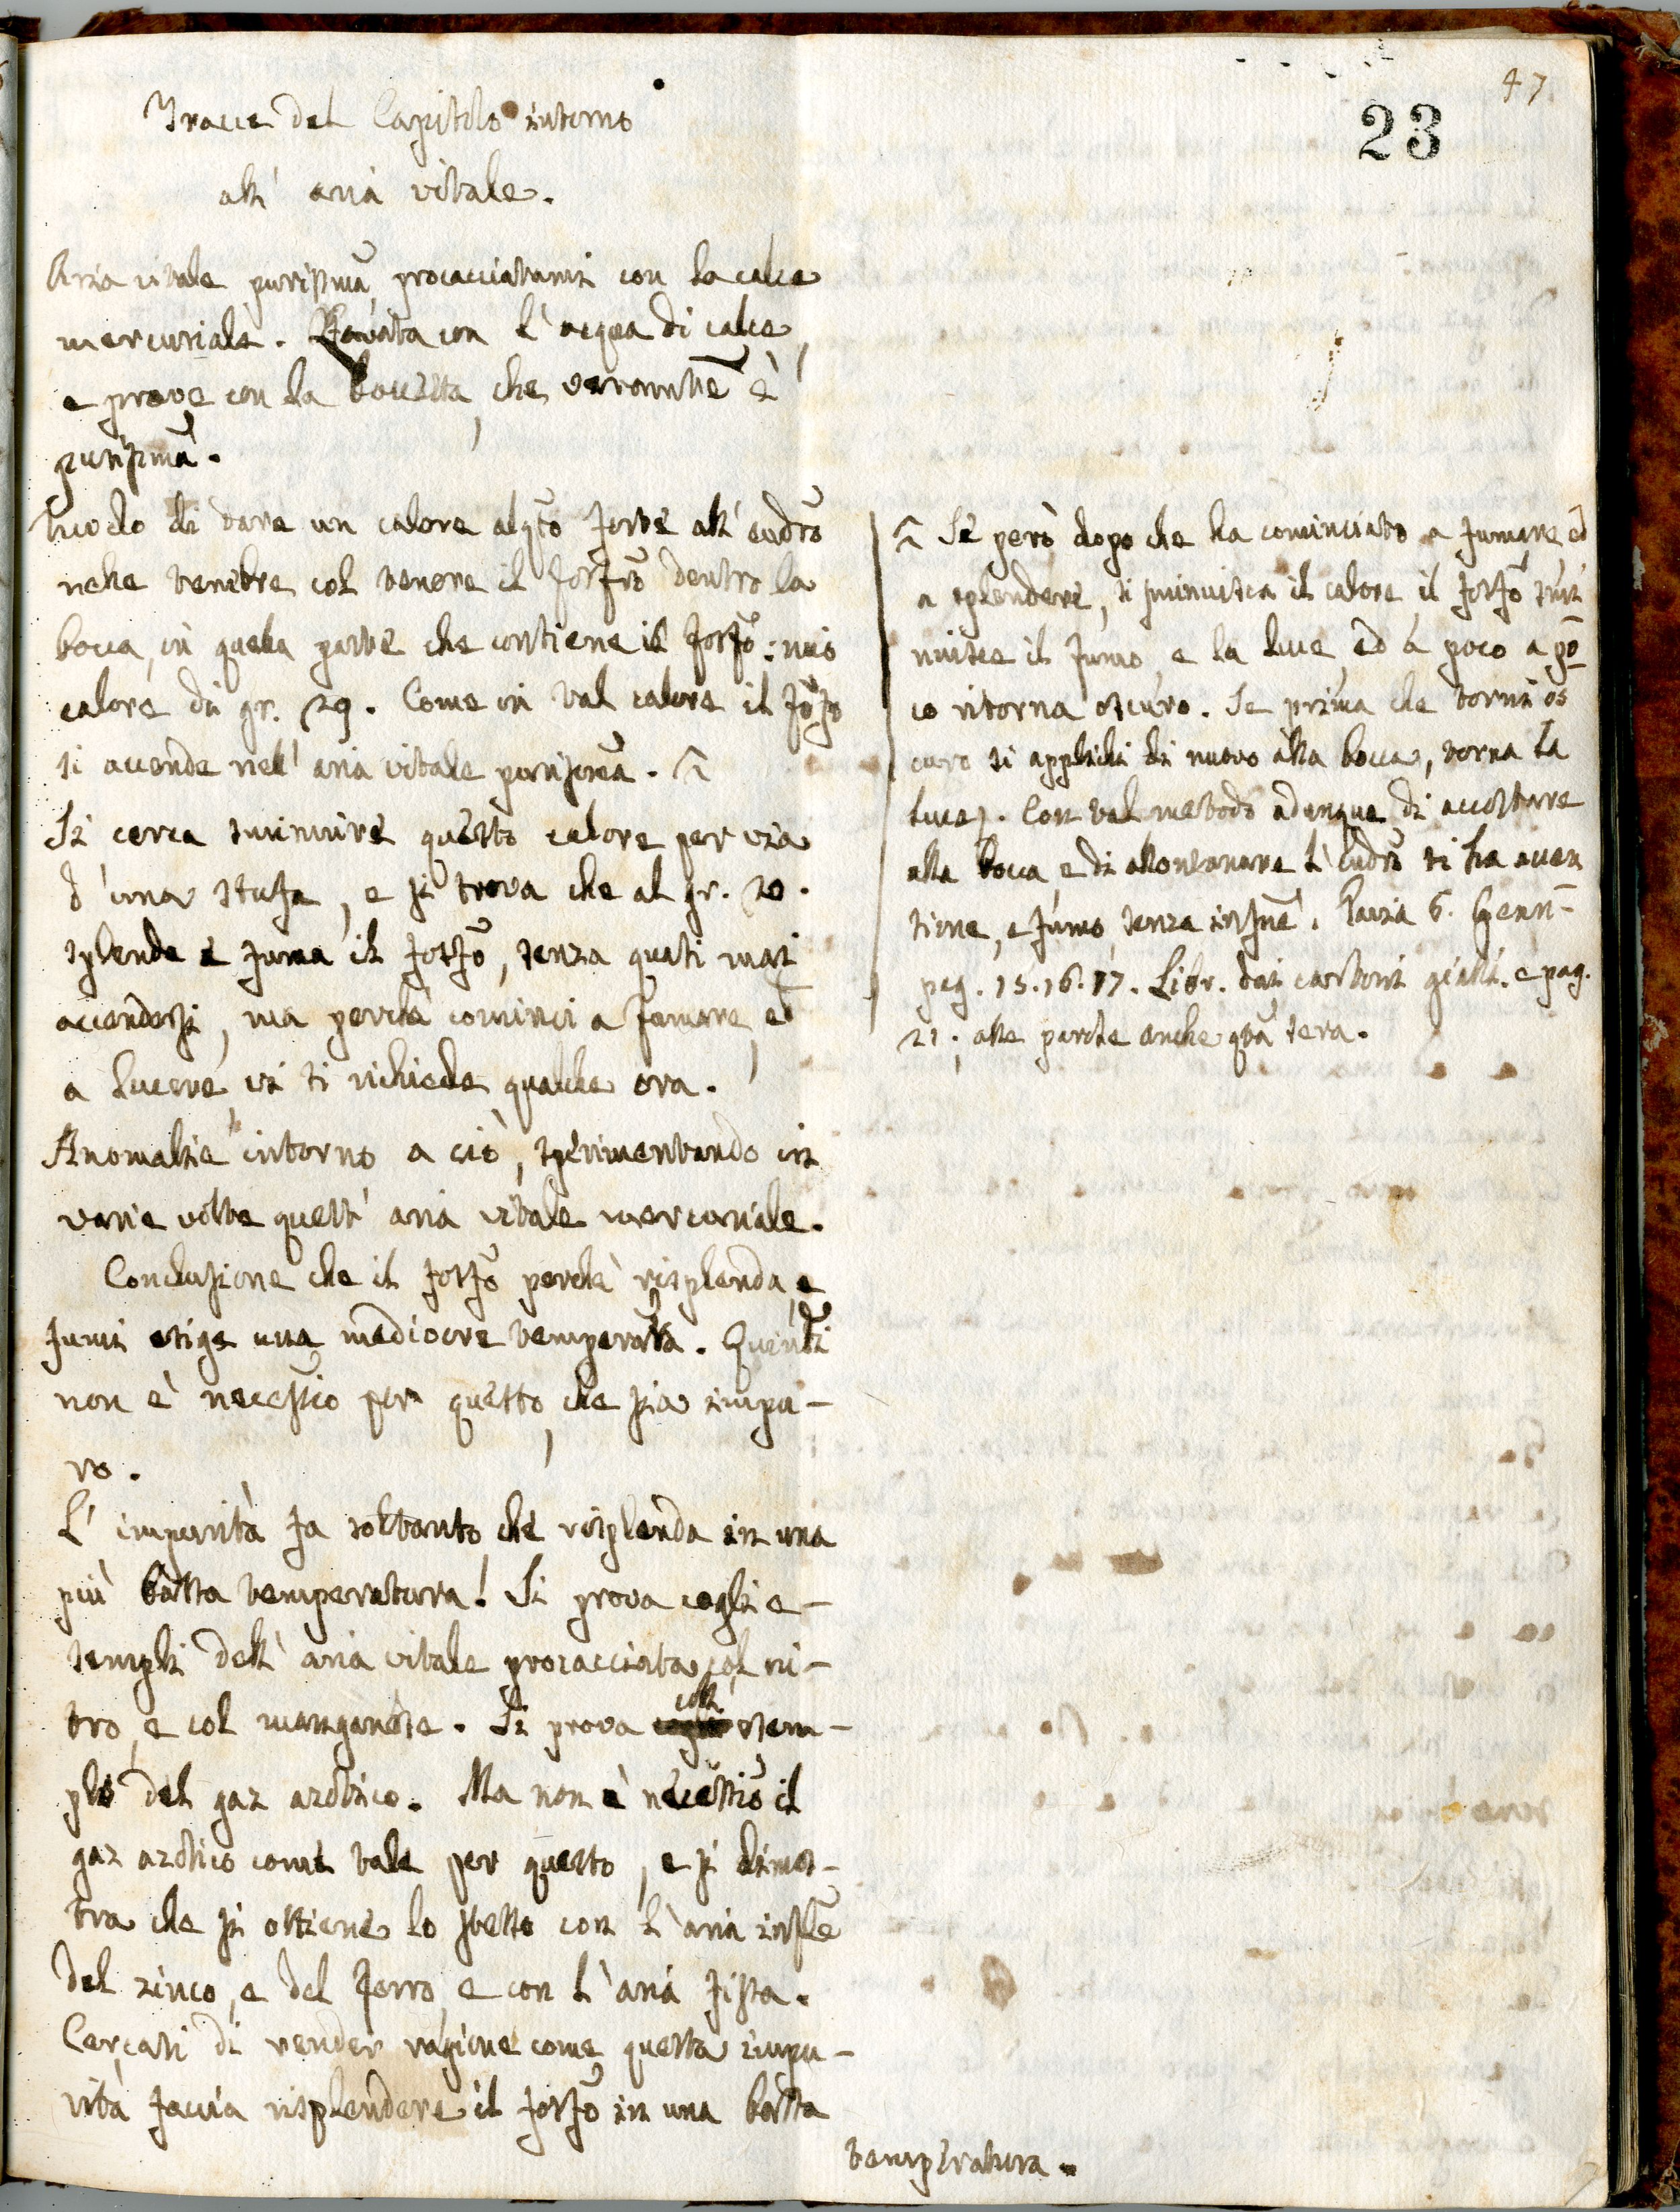 47
23
Tracce del Capitolo intorno
all' aria vitale.
Aria vitale purissima, procacciatami con la calce
mercuriale. Lavata con l'acqua di calce,
e prove con la boccetta, che veramte è
purissima.
Modo di dare un calore alqto forte all' eudro
nelle tenebre col tenere il fosfro dentro la
bocca, in quella parte che contiene il fosfo: mio
calore di gr. 29. Come in tal calore il fosfo
si accende nell' aria vitale purissima. ^
Si cerca sminuire questo calore per via
d'una stufa, e si trova che al gr. 20.
splende e fuma il fosfo, senza quasi mai
accendersi, ma perchè cominci a fumare, ed
a lucere, vi si richiede qualche ora.
Anomalie intorno a ciò, sperimentando in
varie volte quest' aria vitale mercuriale.
Conclusione che il fosfo perchè risplenda, e
fumi esige una mediocre temperatra. Quindi
non è necessio per questo, che sia impu-
ro.
L' impurità fa soltanto che risplenda in una
più bassa temperatura! Si prova cogli e-
sempli dell' aria vitale procacciata col ni-
tro, e col manganese. Si prova coll' esem-
plo del gaz azotico. Ma non è necessio il
gaz azotico come tale per questo, e si dimos-
tra che si ottiene lo stesso con l'aria infle
del zinco, e del ferro, e con l'aria fissa.
Cercasi di render ragione come questa impu-
rità faccia risplendere il fosfo in una bassa
temperatura.
^ Se però dopo che ha cominciato a fumare ed
a splendere, si sminuisca il calore il fosfo smi
nuisce il fumo, e la luce, ed a poco a po
co ritorna oscuro. Se prima che torni os
curo si applichi di nuovo alla bocca, torna la
luce. Con tal metodo adunque di accostare
alla bocca, e di allontanare l'eudro si ha accen
sione, e fumo, senza infne. Pavia 6. Genn-
pag. 15. 16. 17. Libr. dai cartoni gialli. e pag.
21. alle parole anche qta sera.